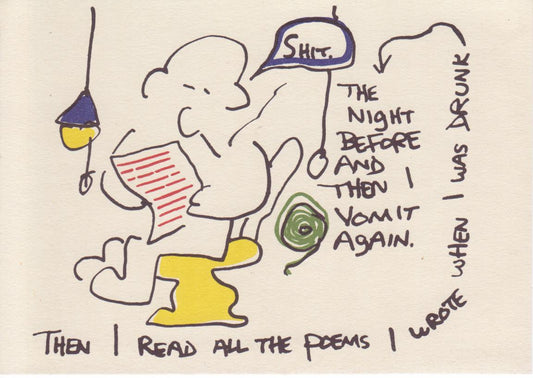 SHIT.
THEN I READ ALL THE POEMS I WROTE WHEN I WAS DRUNK
THE
NIGHT
BEFORE
AND
THEN I
VOMIT
AGAIN.